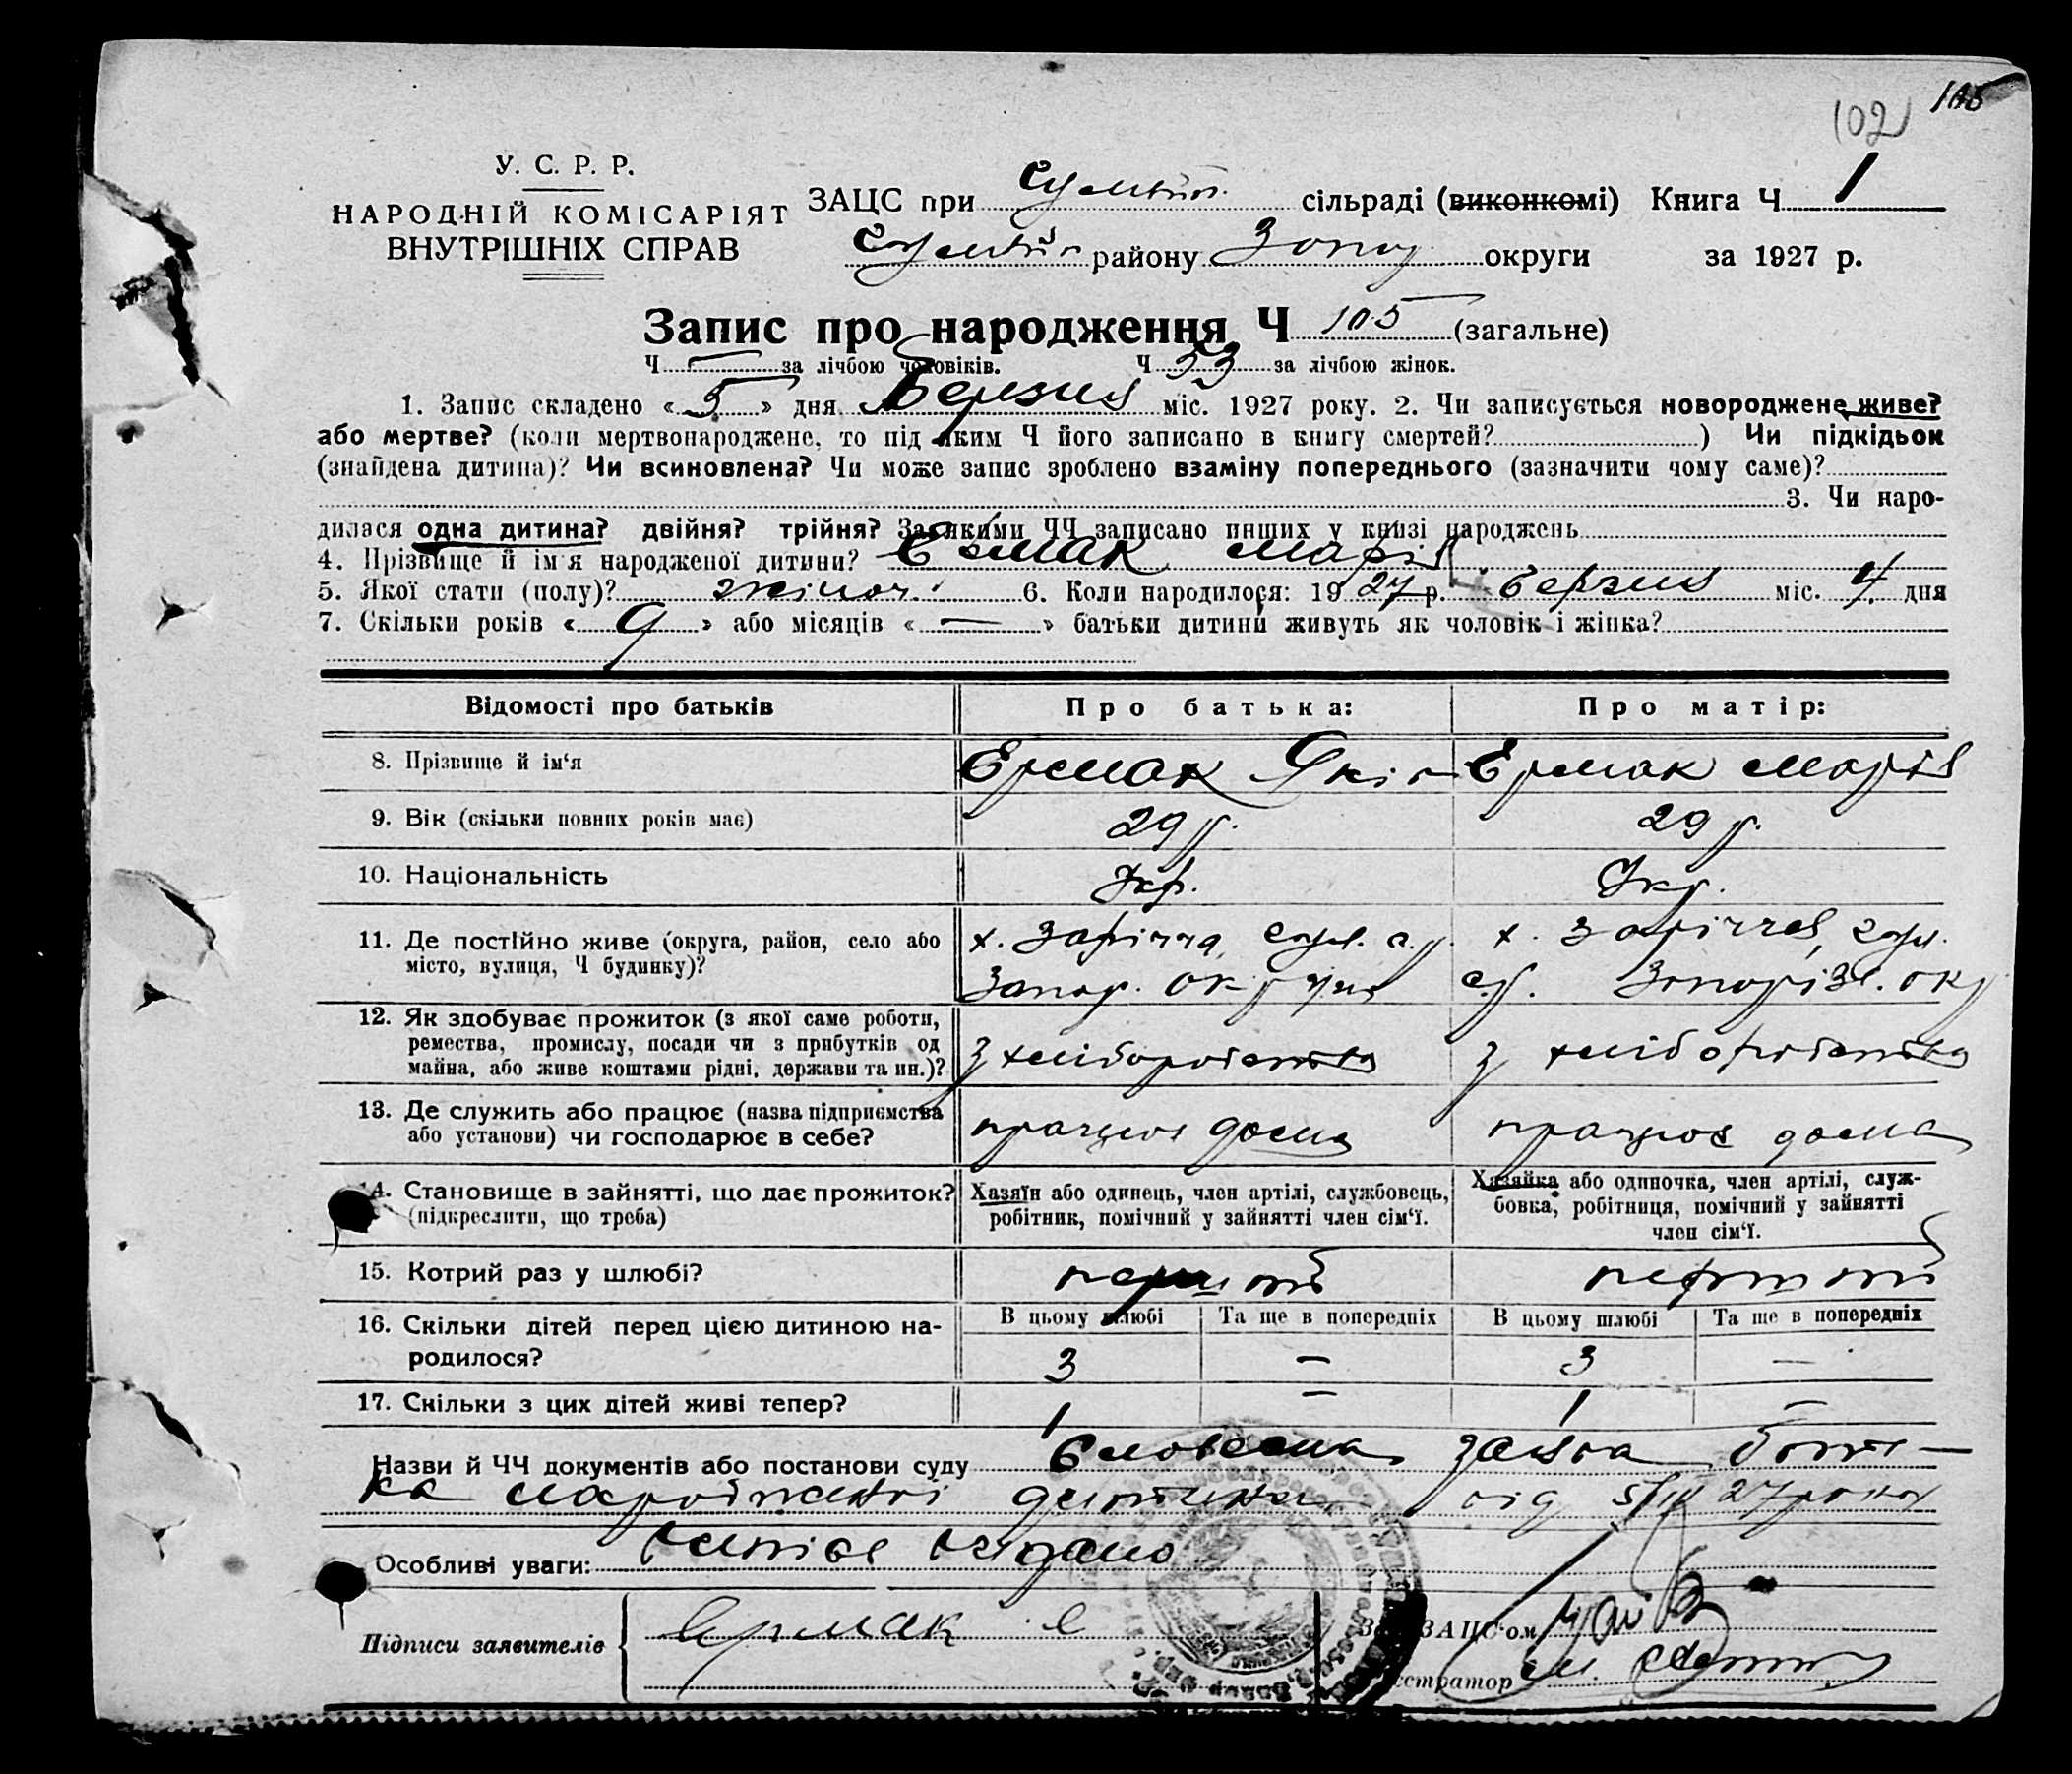 105
102
У. С. Р. Р.
НАРОДНІЙ КОМІСАРІЯТ
ВНУТРІШНІХ СПРАВ
ЗАЦС при сільраді (виконкомі) Книга Ч 1
району Запор округи за 1927 р.
Запис про народження Ч 105 (загальне)
Ч — за лічбою чоловіків. Ч 53 за лічбою жінок.
1. Запис складено « 5 » дня Березня міс. 1927 року. 2. Чи записується новороджене живе?
або мертве? (коли мертвонароджене, то під яким Ч його записано в книгу смертей? ) Чи підкідьок
(знайдена дитина)? Чи всиновлена? Чи може запис зроблено взаміну попереднього (зазначити чому саме)?
3. Чи наро-
дилася одна дитина? двійня? трійня? За якими ЧЧ записано инших у книзі народжень
4. Прізвище й ім'я народженої дитини? Єрмак Марія
5. Якої стати (полу)? жіноч. 6. Коли народилося: 1927 р. березня міс. 4 дня
7. Скільки років « 9 » або місяців « — » батьки дитини живуть як чоловік і жінка?
Відомості про батьків Про батька: Про матір:
8. Прізвище й ім‘я Єрмак Яків Єрмак Марія
9. Вік (скільки повних років має) 29 р. 29 р.
10. Національність Укр. Укр.
11. Де постійно живе (округа, район, село або х. Заріччя, х. Заріччя,
місто, вулиця, Ч будинку)? Запор. округи Запоріз. окр
12. Як здобуває прожиток (з якої саме роботи,
ремества, промислу, посади чи з прибутків од з хліборобства з хліборобства
майна, або живе коштами рідні, держави та ин.)?
13. Де служить або працює (назва підприємства працює дома працює дома
або установи) чи господарює в себе?
14. Становище в зайнятті, що дає прожиток? Хазяїн або одинець, член артілі, службовець, Хазяйка або одиночка, член артілі, служ-
(підкреслити, що треба) робітник, помічний у зайнятті член сім‘ї. бовка, робітниця, помічний у зайнятті
член сім‘ї.
15. Котрий раз у шлюбі? перший перший
16. Скільки дітей перед цією дитиною на- В цьому шлюбі Та ще в попередніх В цьому шлюбі Та ще в попередніх
родилося? 3 — 3 —
17. Скільки з цих дітей живі тепер? 1 — 1 —
Назви й ЧЧ документів або постанови суду Словесна заява бать-
ка народженої дитини від 5/III 27 року
Особливі уваги: видано
Підписи заявителів Єрмак Є
ЗАЦС'ом